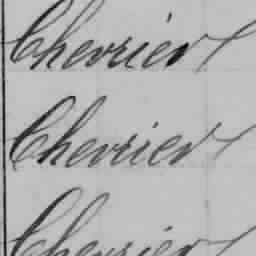 Chevrier
Chevrier
Chevrier